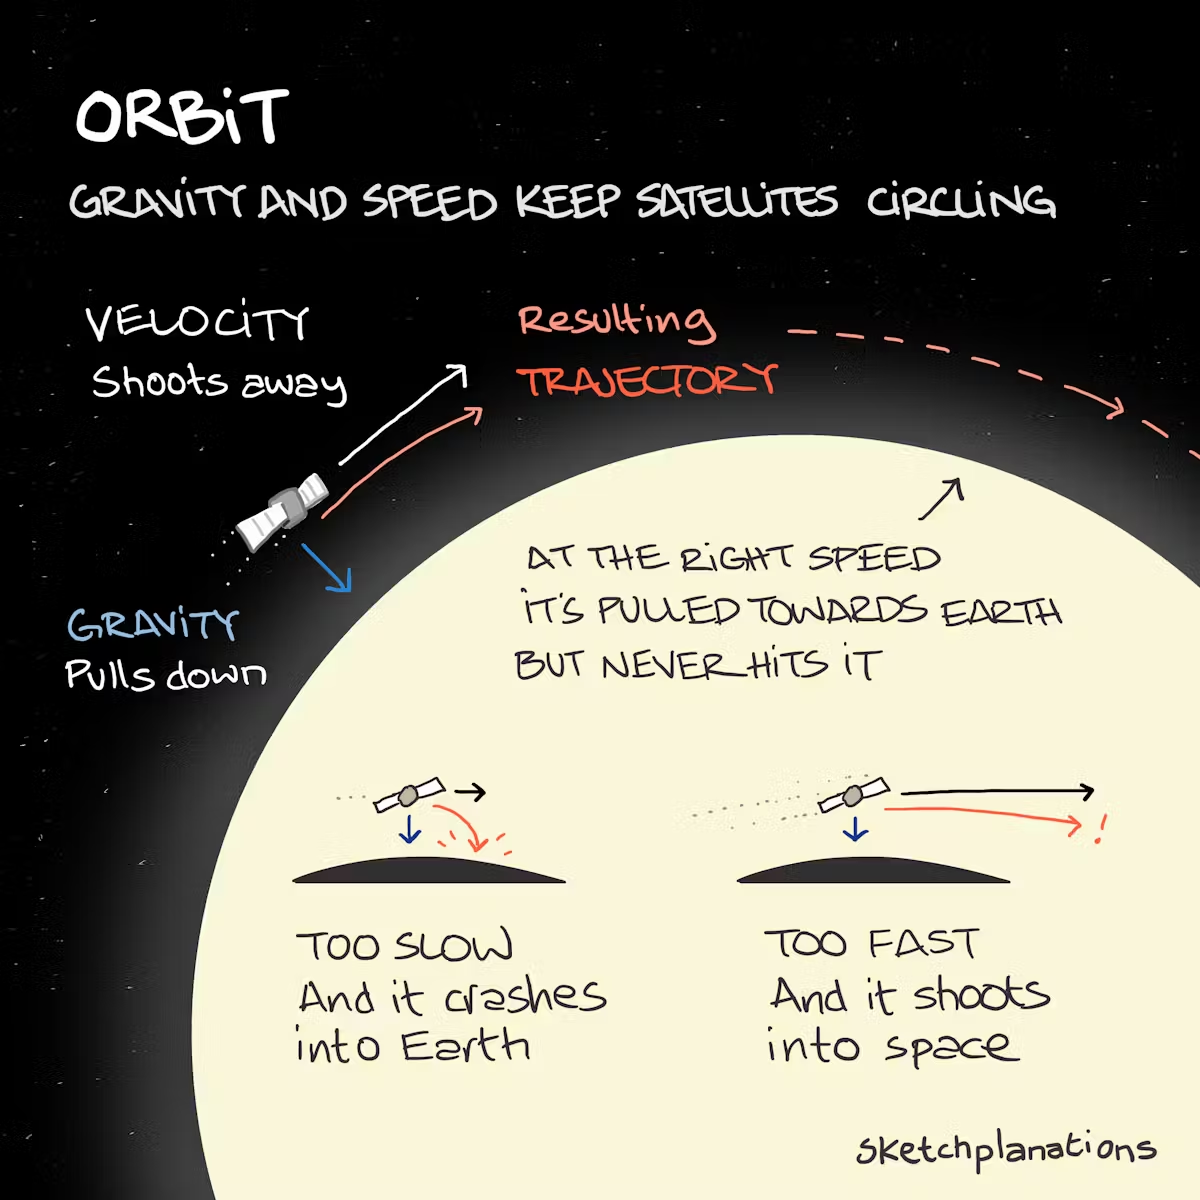 ORBiT
GRAViTY AND SPEED KEEP SATELLiTES CiRCLiNG
VELOCiTY
Shoots away
Resulting
TRAJECTORY
GRAViTY
Pulls down
AT THE RiGHT SPEED
iT'S PULLED TOWARDS EARTH
BUT NEVER HiTS iT
!
TOO SLOW
And it crashes
into Earth
TOO FAST
And it shoots
into space
sketchplanations